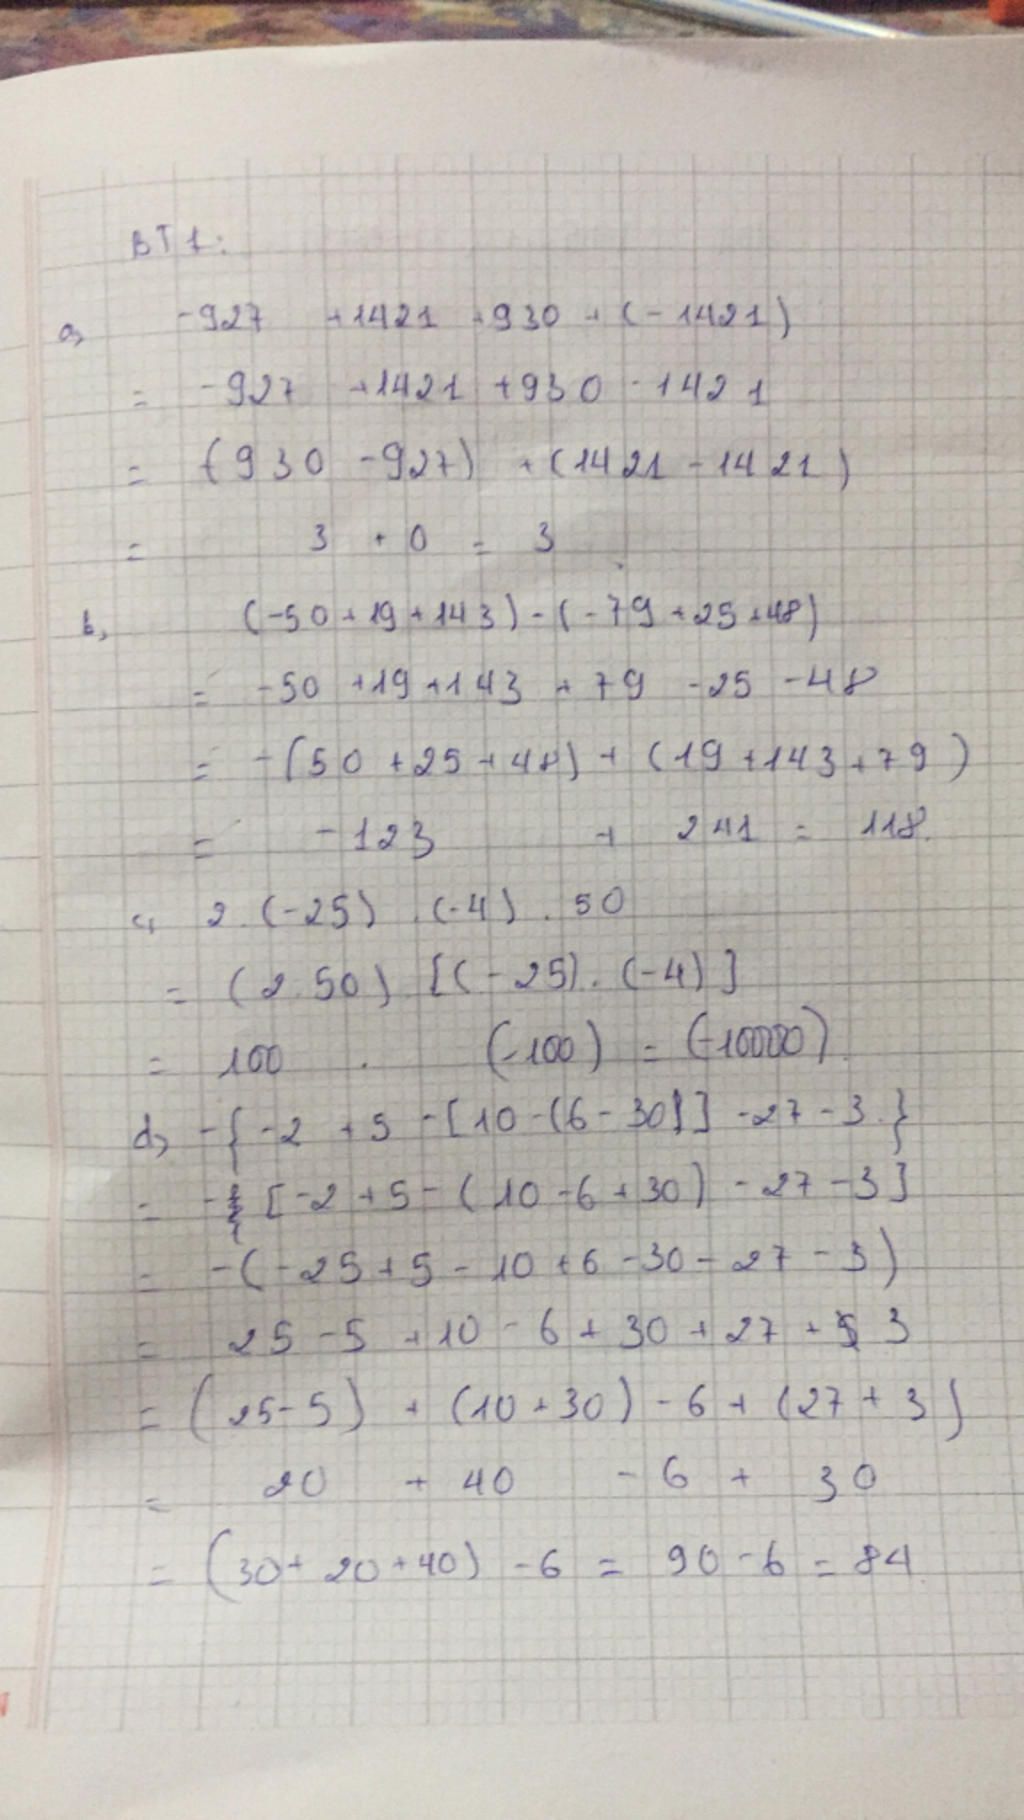 BT1:
a, -927 +1421 +930 + (-1421)
= -927 +1421 +930 -1421
= (930 -927) + (1421 -1421)
= 3 + 0 = 3
b, (-50 +19 +143) - (-79 +25 +48)
= -50 +19 +143 +79 -25 -48
= -(50 +25 +48) + (19 +143 +79)
= -123 + 241 = 118.
c, 2.(-25).(-4).50
= (2.50).[(-25).(-4)]
= 100 . (-100) = (-10000)
d, -{-2 +5 -[10 -(6 -30)] -27 -3.}
= - [-2 +5 -(10 -6 +30) -27 -3]
= -(-25 +5 -10 +6 -30 -27 -3)
= 25 -5 +10 -6 +30 +27 + 3
= (25 -5) + (10 +30) -6 + (27 +3)
= 20 + 40 -6 + 30
= (30 + 20 +40) -6 = 90 -6 = 84.